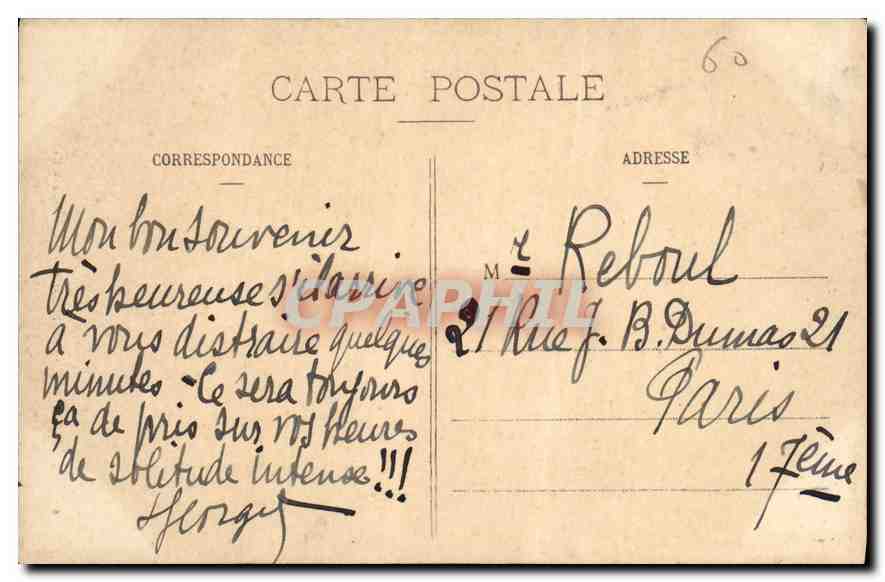 60
CARTE POSTALE
CORRESPONDANCE
ADRESSE
Mon bon souvenir
très heureuse s'il arrive
à vous distraire quelques
minutes - Ce sera toujours
ça de pris sur vos heures
de solitude intense !!!
Mr Reboul
21 Rue J. B. Dumas 21
Paris
17ème
CPAPHIL